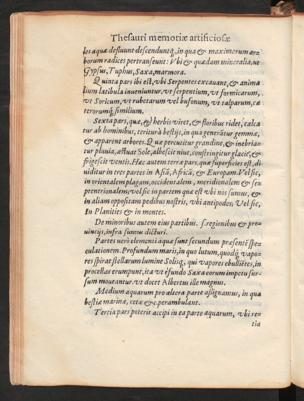 Thesauri memoriæ artificiosæ
les aquæ desinunt descenduntq́;, in qua & maximarum ar
borum radices pertranseunt: Vbi & quædam mineralia, ut
Gypsus, Tuphus, Saxa, marmora.
Quinta pars ibi est, vbi Serpentes excauant, & anima
lium latibula inueniuntur, vt serpentium, vt formicarum,
vt Soricum, vt rubetarum vel bufonum, vt talparum, cæ
terorumq́; similium.
Sexta pars, quæ, & herbis viret, & floribus ridet, calca
tur ab hominibus, teritur à bestijs, in qua generãtur gemmæ,
& apparent arbores. Quæ percutitur grandine, & inebria-
tur pluuia, æstuat Sole, albescit niue, constringitur glacie, &
frigescit ventis. Hæc autem terræ pars, quæ superficies est, di
uiditur in tres partes in Asiã, Africã, & Europam. Vel sic,
in orientalem plagam, occidentalem, meridionalem & se
ptentrionalem; vel sic in partem quæ est vbi nos sumus, &
in aliam oppositam pedibus nostris, vbi antipodes; Vel sic,
In Planities & in montes.
De minoribus autem eius partibus. s. regionibus & pro
uincijs, infra sumus dicturi.
Partes verò elementi aquæ sunt secundum præsentẽ spe
culationem. Profundum maris, in quo lutum, quodq́; vapo-
res spirat stellarum lumine Solisq́; qui vapores ebullitẽt, in
procellas erumpunt, ita vt isundo Saxa eorum impetu sur-
sum moueantur. vt docet Albertus ille magnus.
Mediam aquarum pro altera parte assignamus, in qua
bestiæ marinæ, cetæ &c. perambulant.
Tertia pars poterit accipi in ea parte aquarum, vbi re-
tia